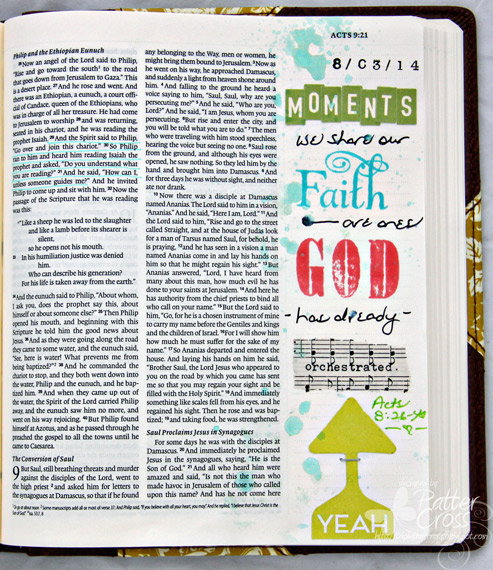 ACTS 9:21
Philip and the Ethiopian Eunuch
26 Now an angel of the Lord said to Philip,
"Rise and go toward the south to the road
that goes down from Jerusalem to Gaza." This
is a desert place. 27 And he rose and went. And
there was an Ethiopian, a eunuch, a court offi-
cial of Candace, queen of the Ethiopians, who
was in charge of all her treasure. He had come
to Jerusalem to worship 28 and was returning,
seated in his chariot, and he was reading the
prophet Isaiah. 29 And the Spirit said to Philip,
"Go over and join this chariot." 30 So Philip
ran to him and heard him reading Isaiah the
prophet and asked, "Do you understand what
you are reading?" 31 And he said, "How can I,
unless someone guides me?" And he invited
Philip to come up and sit with him. 32 Now the
passage of the Scripture that he was reading
was this:
"Like a sheep he was led to the slaughter
and like a lamb before its shearer is
silent,
so he opens not his mouth.
33 In his humiliation justice was denied
him.
Who can describe his generation?
For his life is taken away from the earth."
34 And the eunuch said to Philip, "About whom,
I ask you, does the prophet say this, about
himself or about someone else?" 35 Then Philip
opened his mouth, and beginning with this
Scripture he told him the good news about
Jesus. 36 And as they were going along the road
they came to some water, and the eunuch said,
"See, here is water! What prevents me from
being baptized?" 38 And he commanded the
chariot to stop, and they both went down into
the water, Philip and the eunuch, and he bap-
tized him. 39 And when they came up out of
the water, the Spirit of the Lord carried Philip
away, and the eunuch saw him no more, and
went on his way rejoicing. 40 But Philip found
himself at Azotus, and as he passed through he
preached the gospel to all the towns until he
came to Caesarea.
The Conversion of Saul
9 But Saul, still breathing threats and murder
against the disciples of the Lord, went to
the high priest 2 and asked him for letters to
the synagogues at Damascus, so that if he found
any belonging to the Way, men or women, he
might bring them bound to Jerusalem. 3 Now as
he went on his way, he approached Damascus,
and suddenly a light from heaven shone around
him. 4 And falling to the ground he heard a
voice saying to him, "Saul, Saul, why are you
persecuting me?" 5 And he said, "Who are you,
Lord?" And he said, "I am Jesus, whom you are
persecuting. 6 But rise and enter the city, and
you will be told what you are to do." 7 The men
who were traveling with him stood speechless,
hearing the voice but seeing no one. 8 Saul rose
from the ground, and although his eyes were
opened, he saw nothing. So they led him by the
hand and brought him into Damascus. 9 And
for three days he was without sight, and neither
ate nor drank.
10 Now there was a disciple at Damascus
named Ananias. The Lord said to him in a vision,
"Ananias." And he said, "Here I am, Lord." 11 And
the Lord said to him, "Rise and go to the street
called Straight, and at the house of Judas look
for a man of Tarsus named Saul, for behold, he
is praying, 12 and he has seen in a vision a man
named Ananias come in and lay his hands on
him so that he might regain his sight." 13 But
Ananias answered, "Lord, I have heard from
many about this man, how much evil he has
done to your saints at Jerusalem. 14 And here he
has authority from the chief priests to bind all
who call on your name." 15 But the Lord said to
him, "Go, for he is a chosen instrument of mine
to carry my name before the Gentiles and kings
and the children of Israel. 16 For I will show him
how much he must suffer for the sake of my
name." 17 So Ananias departed and entered the
house. And laying his hands on him he said,
"Brother Saul, the Lord Jesus who appeared to
you on the road by which you came has sent
me so that you may regain your sight and be
filled with the Holy Spirit." 18 And immediately
something like scales fell from his eyes, and he
regained his sight. Then he rose and was bap-
tized; 19 and taking food, he was strengthened.
Saul Proclaims Jesus in Synagogues
For some days he was with the disciples at
Damascus. 20 And immediately he proclaimed
Jesus in the synagogues, saying, "He is the
Son of God." 21 And all who heard him were
amazed and said, "Is not this the man who
made havoc in Jerusalem of those who called
upon this name? And has he not come here
8/03/14
MOMENTS
we share our
Faith
— are ones
GOD
- has already -
orchestrated.
Acts
8:26-40
YEAH
Patter
Cross